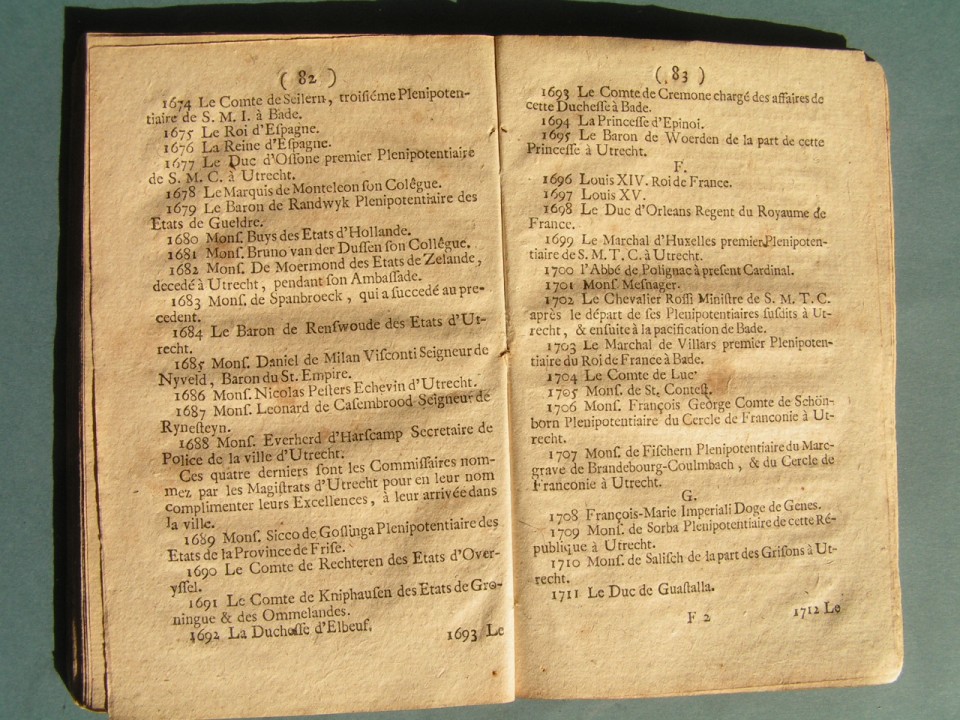 ( 82 )
1674 Le Comte de Seilern, troisiéme Plenipoten-
tiaire de S. M. I. à Bade.
1675 Le Roi d'Eſpagne.
1676 La Reine d'Eſpagne.
1677 Le Duc d'Oſſone premier Plenipotentiaire
de S. M. C. à Utrecht.
1678 Le Marquis de Monteleon ſon Colêgue.
1679 Le Baron de Randwyk Plenipotentiaire des
Etats de Gueldre.
1680 Monſ. Buys des Etats d'Hollande.
1681 Monſ. Bruno van der Duſſen ſon Collêgue.
1682 Monſ. De Moermond des Etats de Zelande,
decedé à Utrecht, pendant ſon Ambaſſade.
1683 Monſ. de Spanbroeck, qui a ſuccedé au pre-
cedent.
1684 Le Baron de Renſwoude des Etats d'Ut-
recht.
1685 Monſ. Daniel de Milan Viſconti Seigneur de
Nyveld, Baron du St. Empire.
1686 Monſ. Nicolas Peſters Echevin d'Utrecht.
1687 Monſ. Leonard de Caſembrood Seigneur de
Ryneſteyn.
1688 Monſ. Everherd d'Harſcamp Secretaire de
Police de la ville d'Utrecht.
Ces quatre derniers ſont les Commiſſaires nom-
mez par les Magiſtrats d'Utrecht pour en leur nom
complimenter leurs Excellences, à leur arrivée dans
la ville.
1689 Monſ. Sicco de Goſlinga Plenipotentiaire des
Etats de la Province de Friſe.
1690 Le Comte de Rechteren des Etats d'Over-
yſſel.
1691 Le Comte de Kniphauſen des Etats de Gro-
ningue & des Ommelandes.
1692 La Ducheſſe d'Elbeuf.
1693 Le
( 83 )
1693 Le Comte de Cremone chargé des affaires de
cette Ducheſſe à Bade.
1694 La Princeſſe d'Epinoi.
1695 Le Baron de Woerden de la part de cette
Princeſſe à Utrecht.
F.
1696 Louis XIV. Roi de France.
1697 Louis XV.
1698 Le Duc d'Orleans Regent du Royaume de
France.
1699 Le Marchal d'Huxelles premier Plenipoten-
tiaire de S. M. T. C. à Utrecht.
1700 l'Abbé de Polignac à preſent Cardinal.
1701 Monſ. Meſnager.
1702 Le Chevalier Roſſi Miniſtre de S. M. T. C.
après le départ de ſes Plenipotentiaires ſuſdits à Ut-
recht, & enſuite à la pacification de Bade.
1703 Le Marchal de Villars premier Plenipoten-
tiaire du Roi de France à Bade.
1704 Le Comte de Luc
1705 Monſ. de St. Conteſt.
1706 Monſ. François George Comte de Schön-
born Plenipotentiaire du Cercle de Franconie à Ut-
recht.
1707 Monſ. de Fiſchern Plenipotentiaire du Marc-
grave de Brandebourg-Coulmbach, & du Cercle de
Franconie à Utrecht.
G.
1708 François-Marie Imperiali Doge de Genes.
1709 Monſ. de Sorba Plenipotentiaire de cette Ré-
publique à Utrecht.
1710 Monſ. de Saliſch de la part des Griſons à Ut-
recht.
1711 Le Duc de Guaſtalla.
F 2
1712 Le